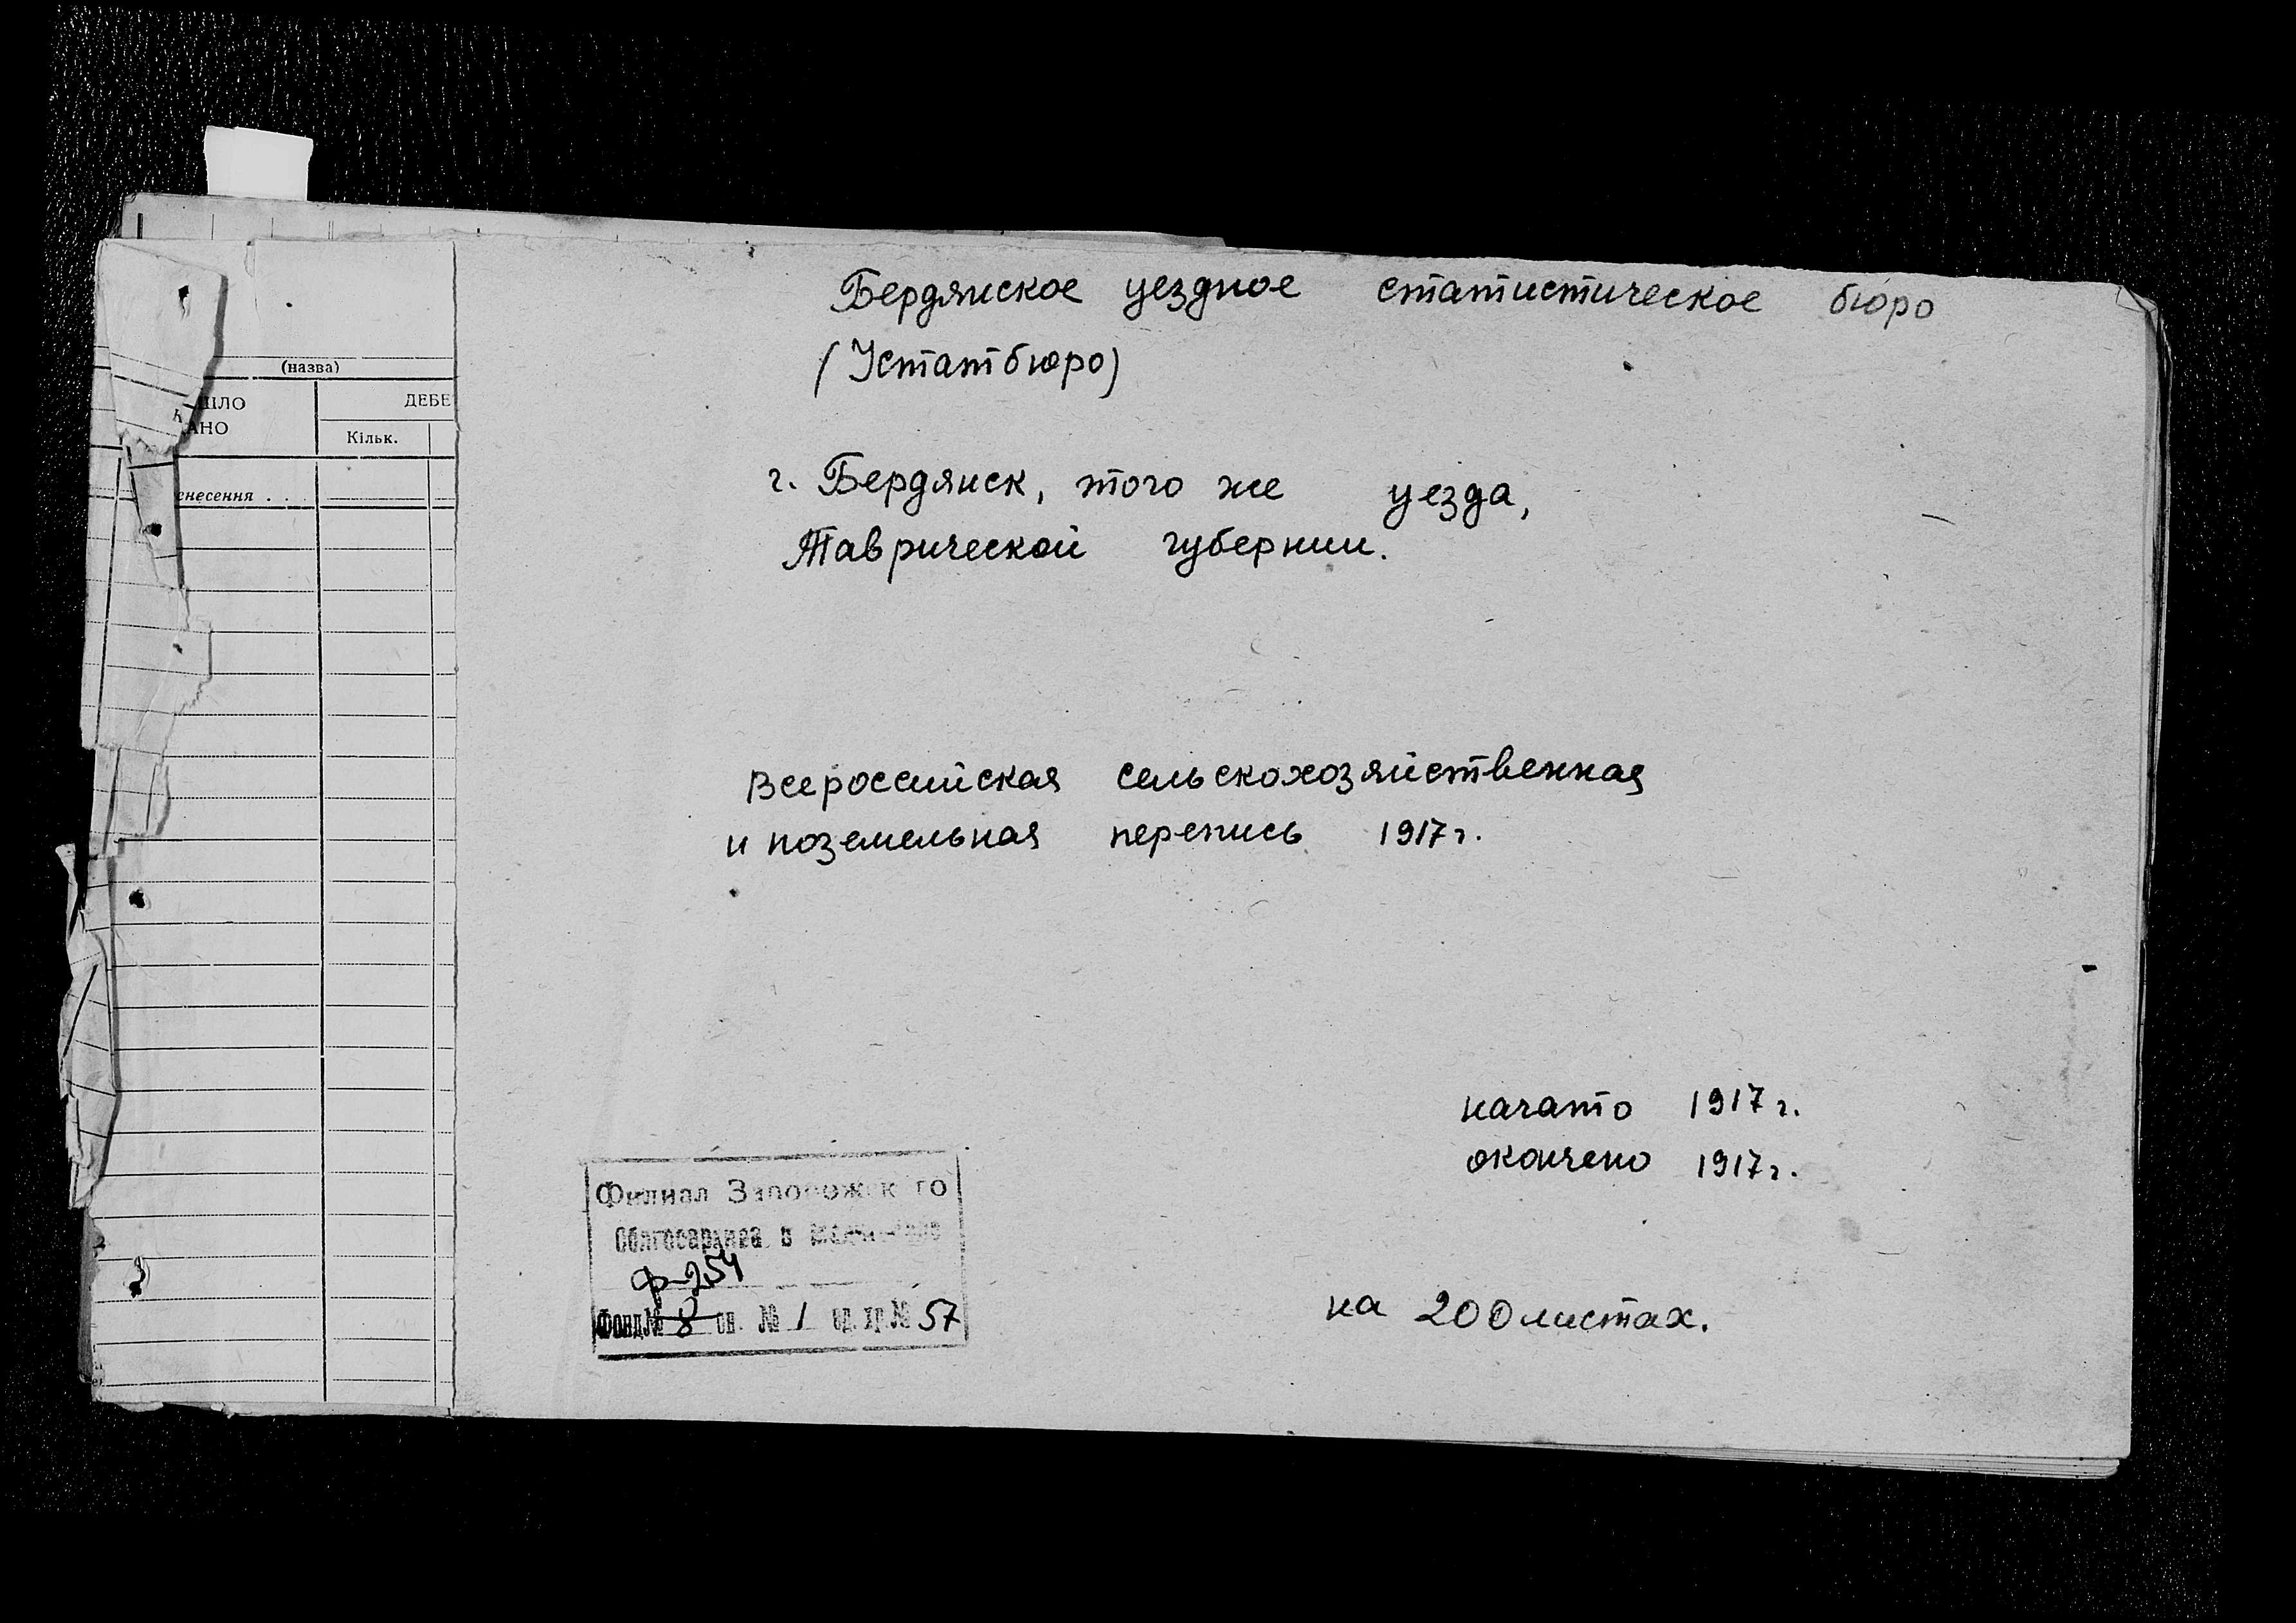 Бердянское уездное статистическое бюро
(Устатбюро)
г. Бердянск, того же уезда,
Таврической губернии.
Всероссийская сельскохозяйственная
и поземельная перепись 1917 г.
начато 1917 г.
окончено 1917 г.
на 200 листах.
Филиал Запорожского
Облгосархива в
ф-254
Фонд № 8 оп. № 1 ед. хр. № 57
(назва)
ЙШЛО
АНО
ДЕБЕ
Кільк.
енесення . . .